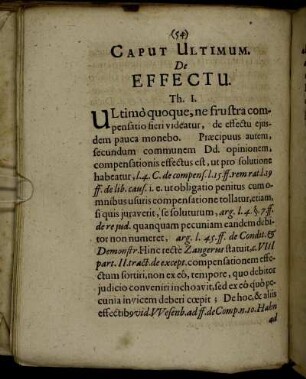 (54)
CAPUT ULTIMUM.
De
EFFECTU.
Th. I.
ULtimò quoque, ne frustra com-
pensatio fieri videatur, de effectu ejus-
dem pauca monebo. Præcipuus autem,
secundum communem Dd. opinionem,
compensationis effectus est, ut pro solutione
habeatur, l. 4. C. de compens. l. 15. ff. rem rat. l. 19
ff. de lib. caus. i. e. ut obligatio penitus cum o-
mnibus usuris compensatione tollatur, etiam,
si quis juravetit, se soluturum, arg. l. 4. §. 7. ff.
de re jud. quanquam pecuniam eandem debi-
tor non numeret, arg. l. 45. ff. de Condit. &
Demonstr. Hinc rectè Zangerus statuit c. VIII
part. II. tract. de except. compensationem effe-
ctum sortiri, non ex eô, tempore, quo debitor
judicio conveniri inchoavit, sed ex eô quô pe-
cunia invicem deberi cœpit; De hoc, & aliis
effectibo vid. VVesenb. ad ff. de Comp. n. 10. Hahn
ad